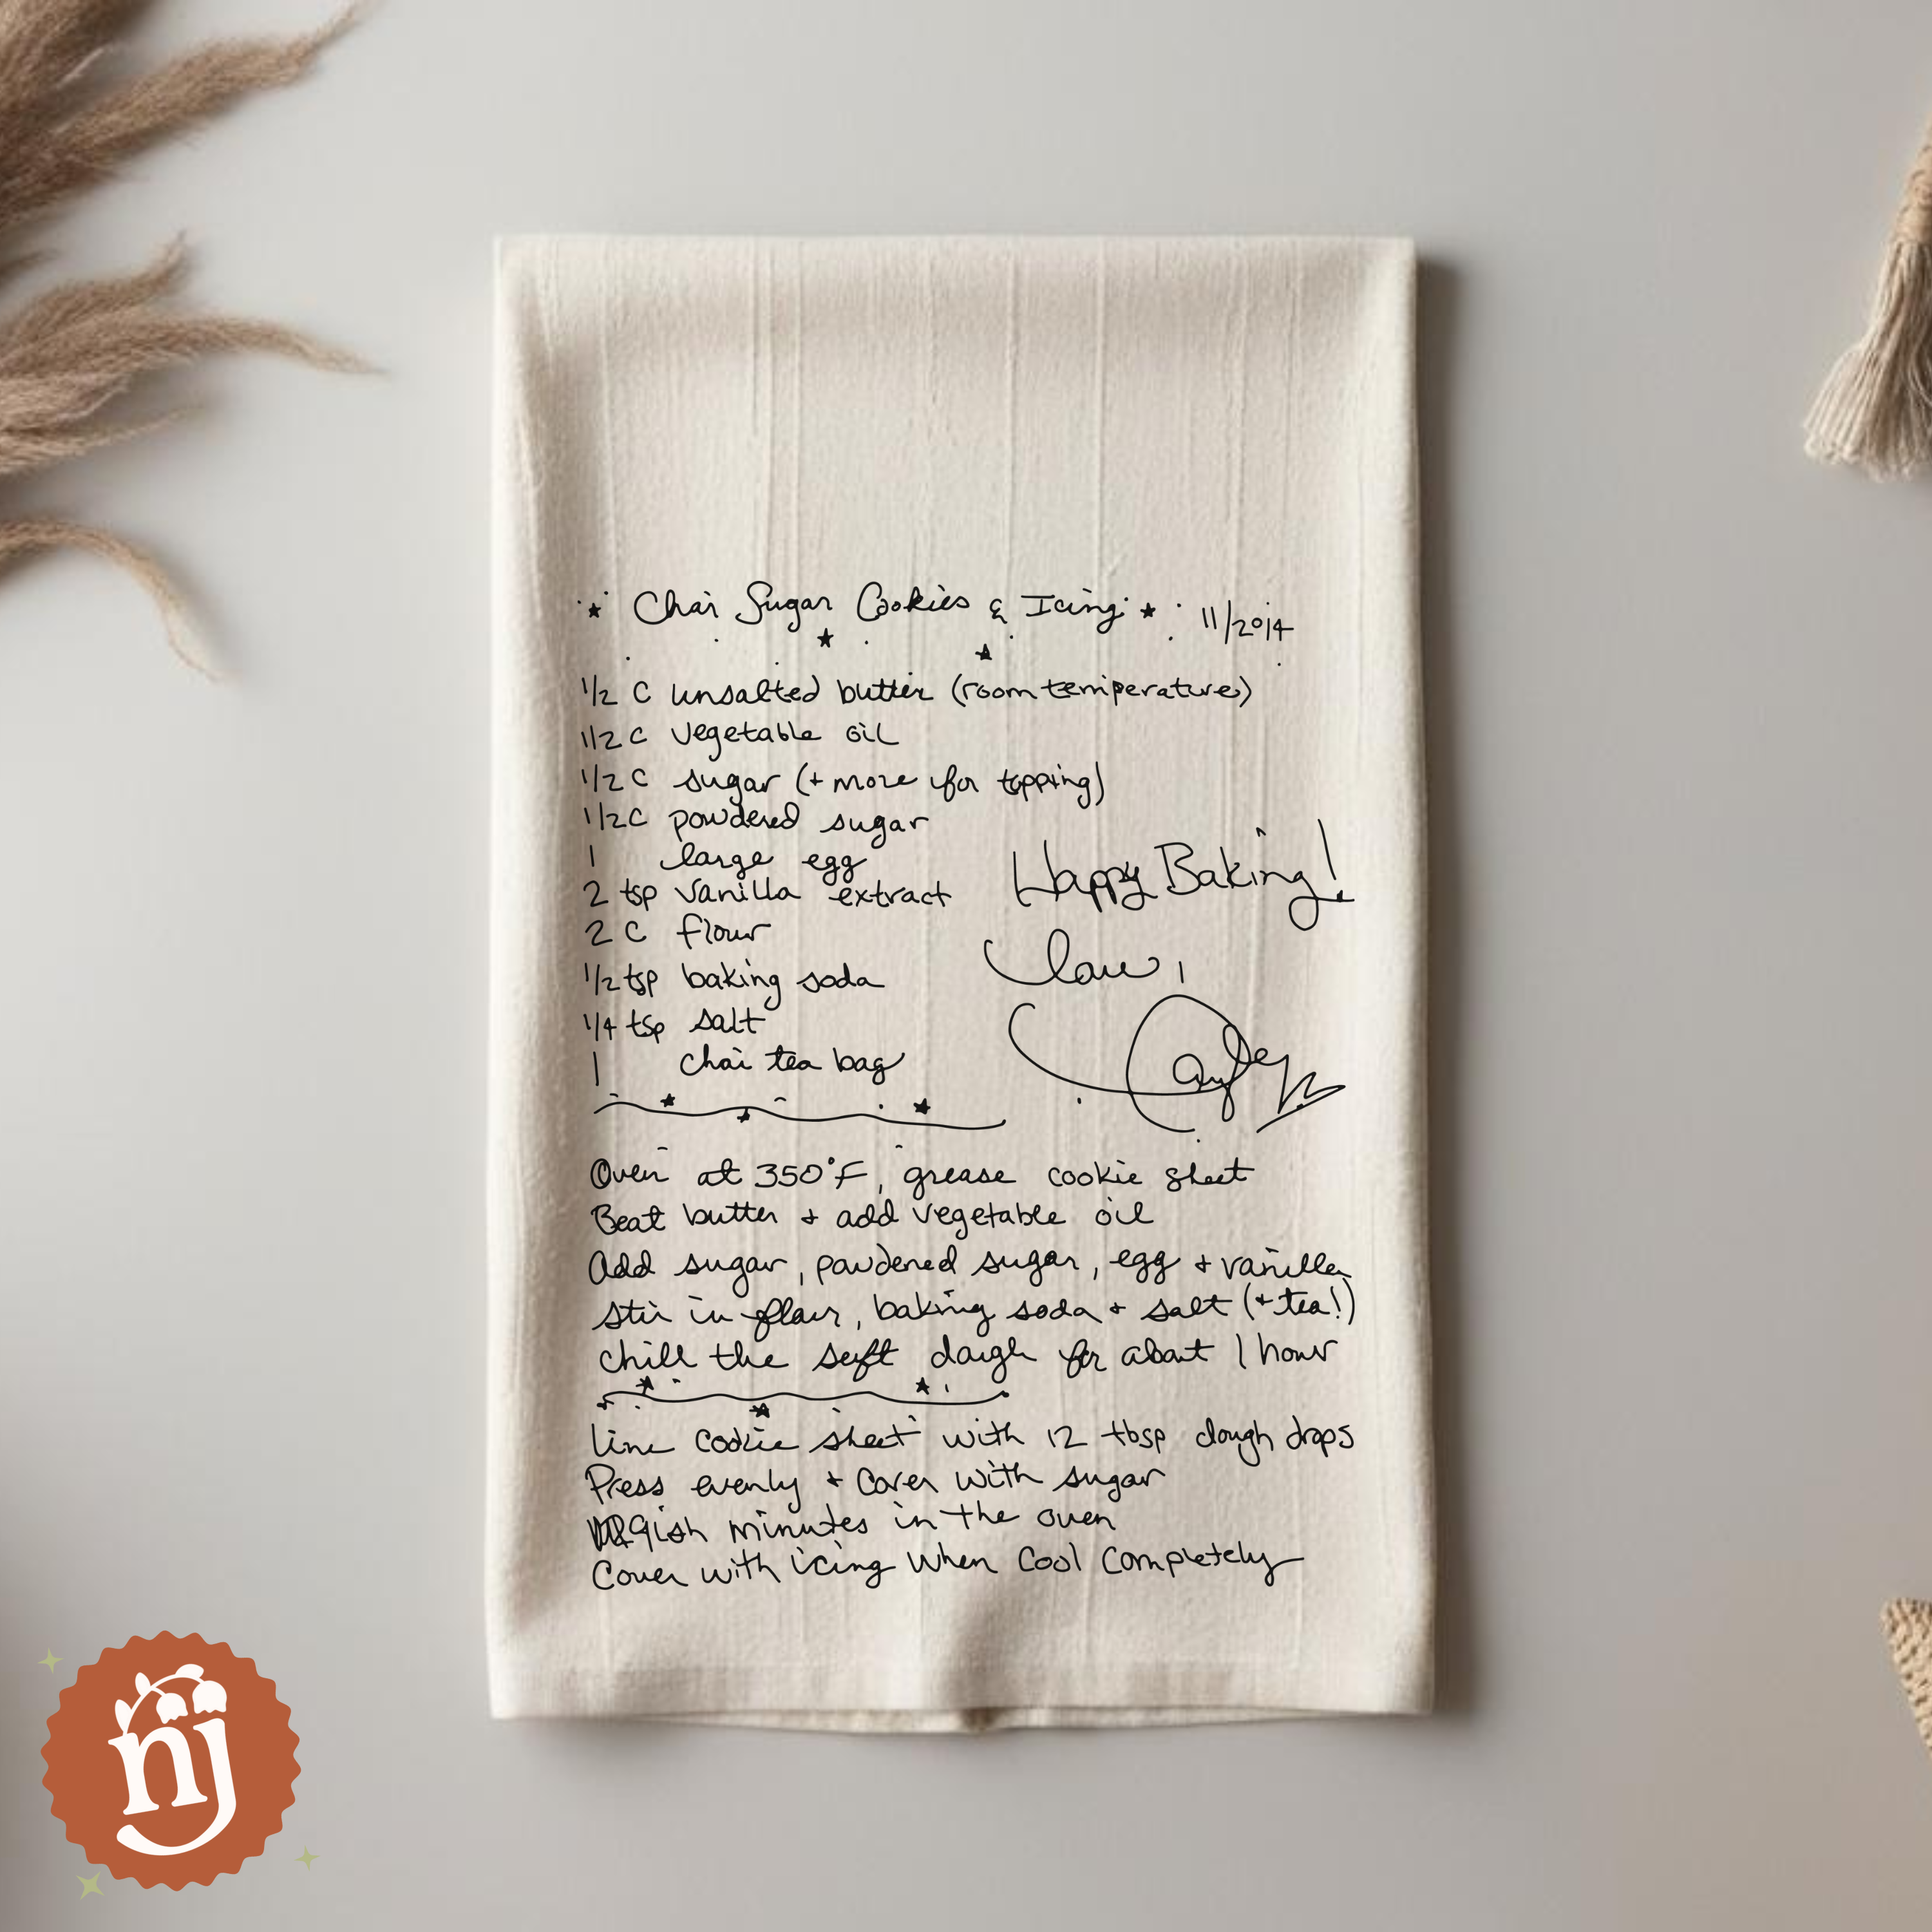 Chai Sugar Cookies & Icing 11/2014
1/2 C unsalted butter (room temperature)
1/2 C vegetable oil
1/2 C sugar (+ more for topping)
1/2 C powdered sugar
1 large egg
2 tsp vanilla extract
2 C flour
1/2 tsp baking soda
1/4 tsp salt
1 chai tea bag
Happy Baking!
Oven at 350°F, grease cookie sheet
Beat butter + add vegetable oil
Add sugar, powdered sugar, egg + vanilla
stir in flour, baking soda + salt (+ tea!)
chill the soft dough for about 1 hour
Line cookie sheet with 12 tbsp dough drops
Press evenly + cover with sugar
9ish minutes in the oven
Cover with icing when cool completely
nj